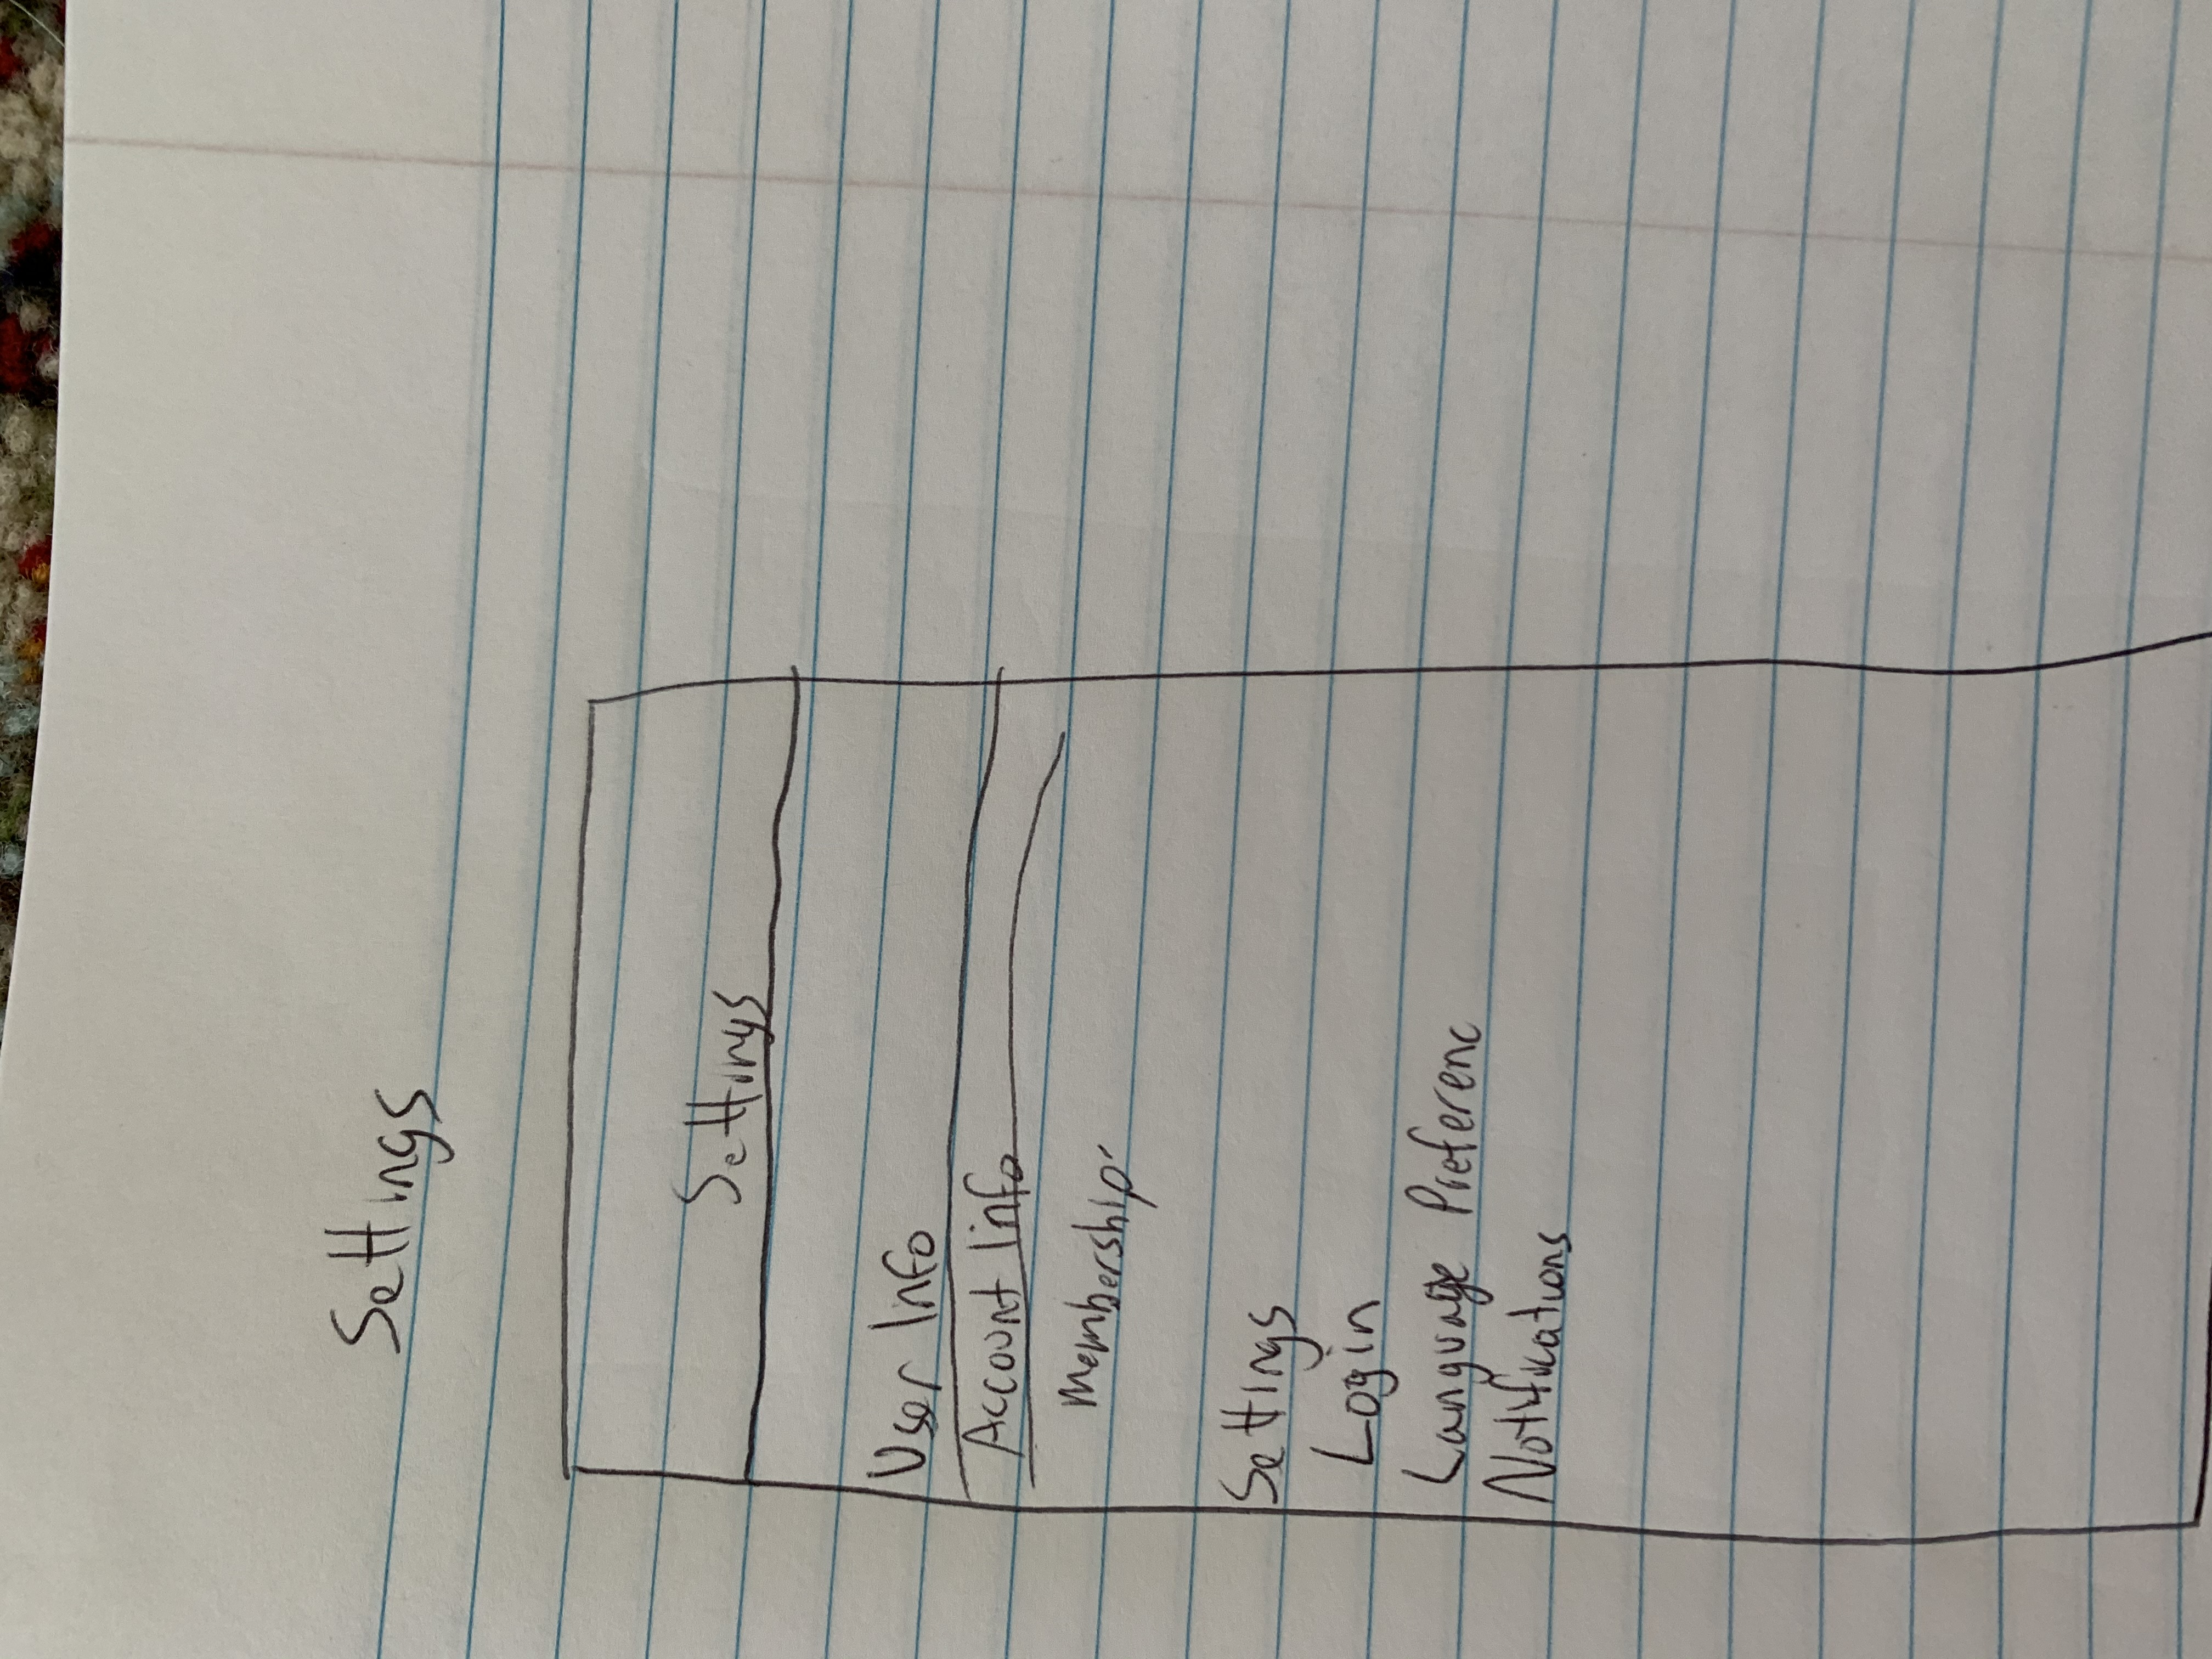 Settings
Settings
User Info
Account Info
Membership
Settings
Login
Language Preferenc
Notifications